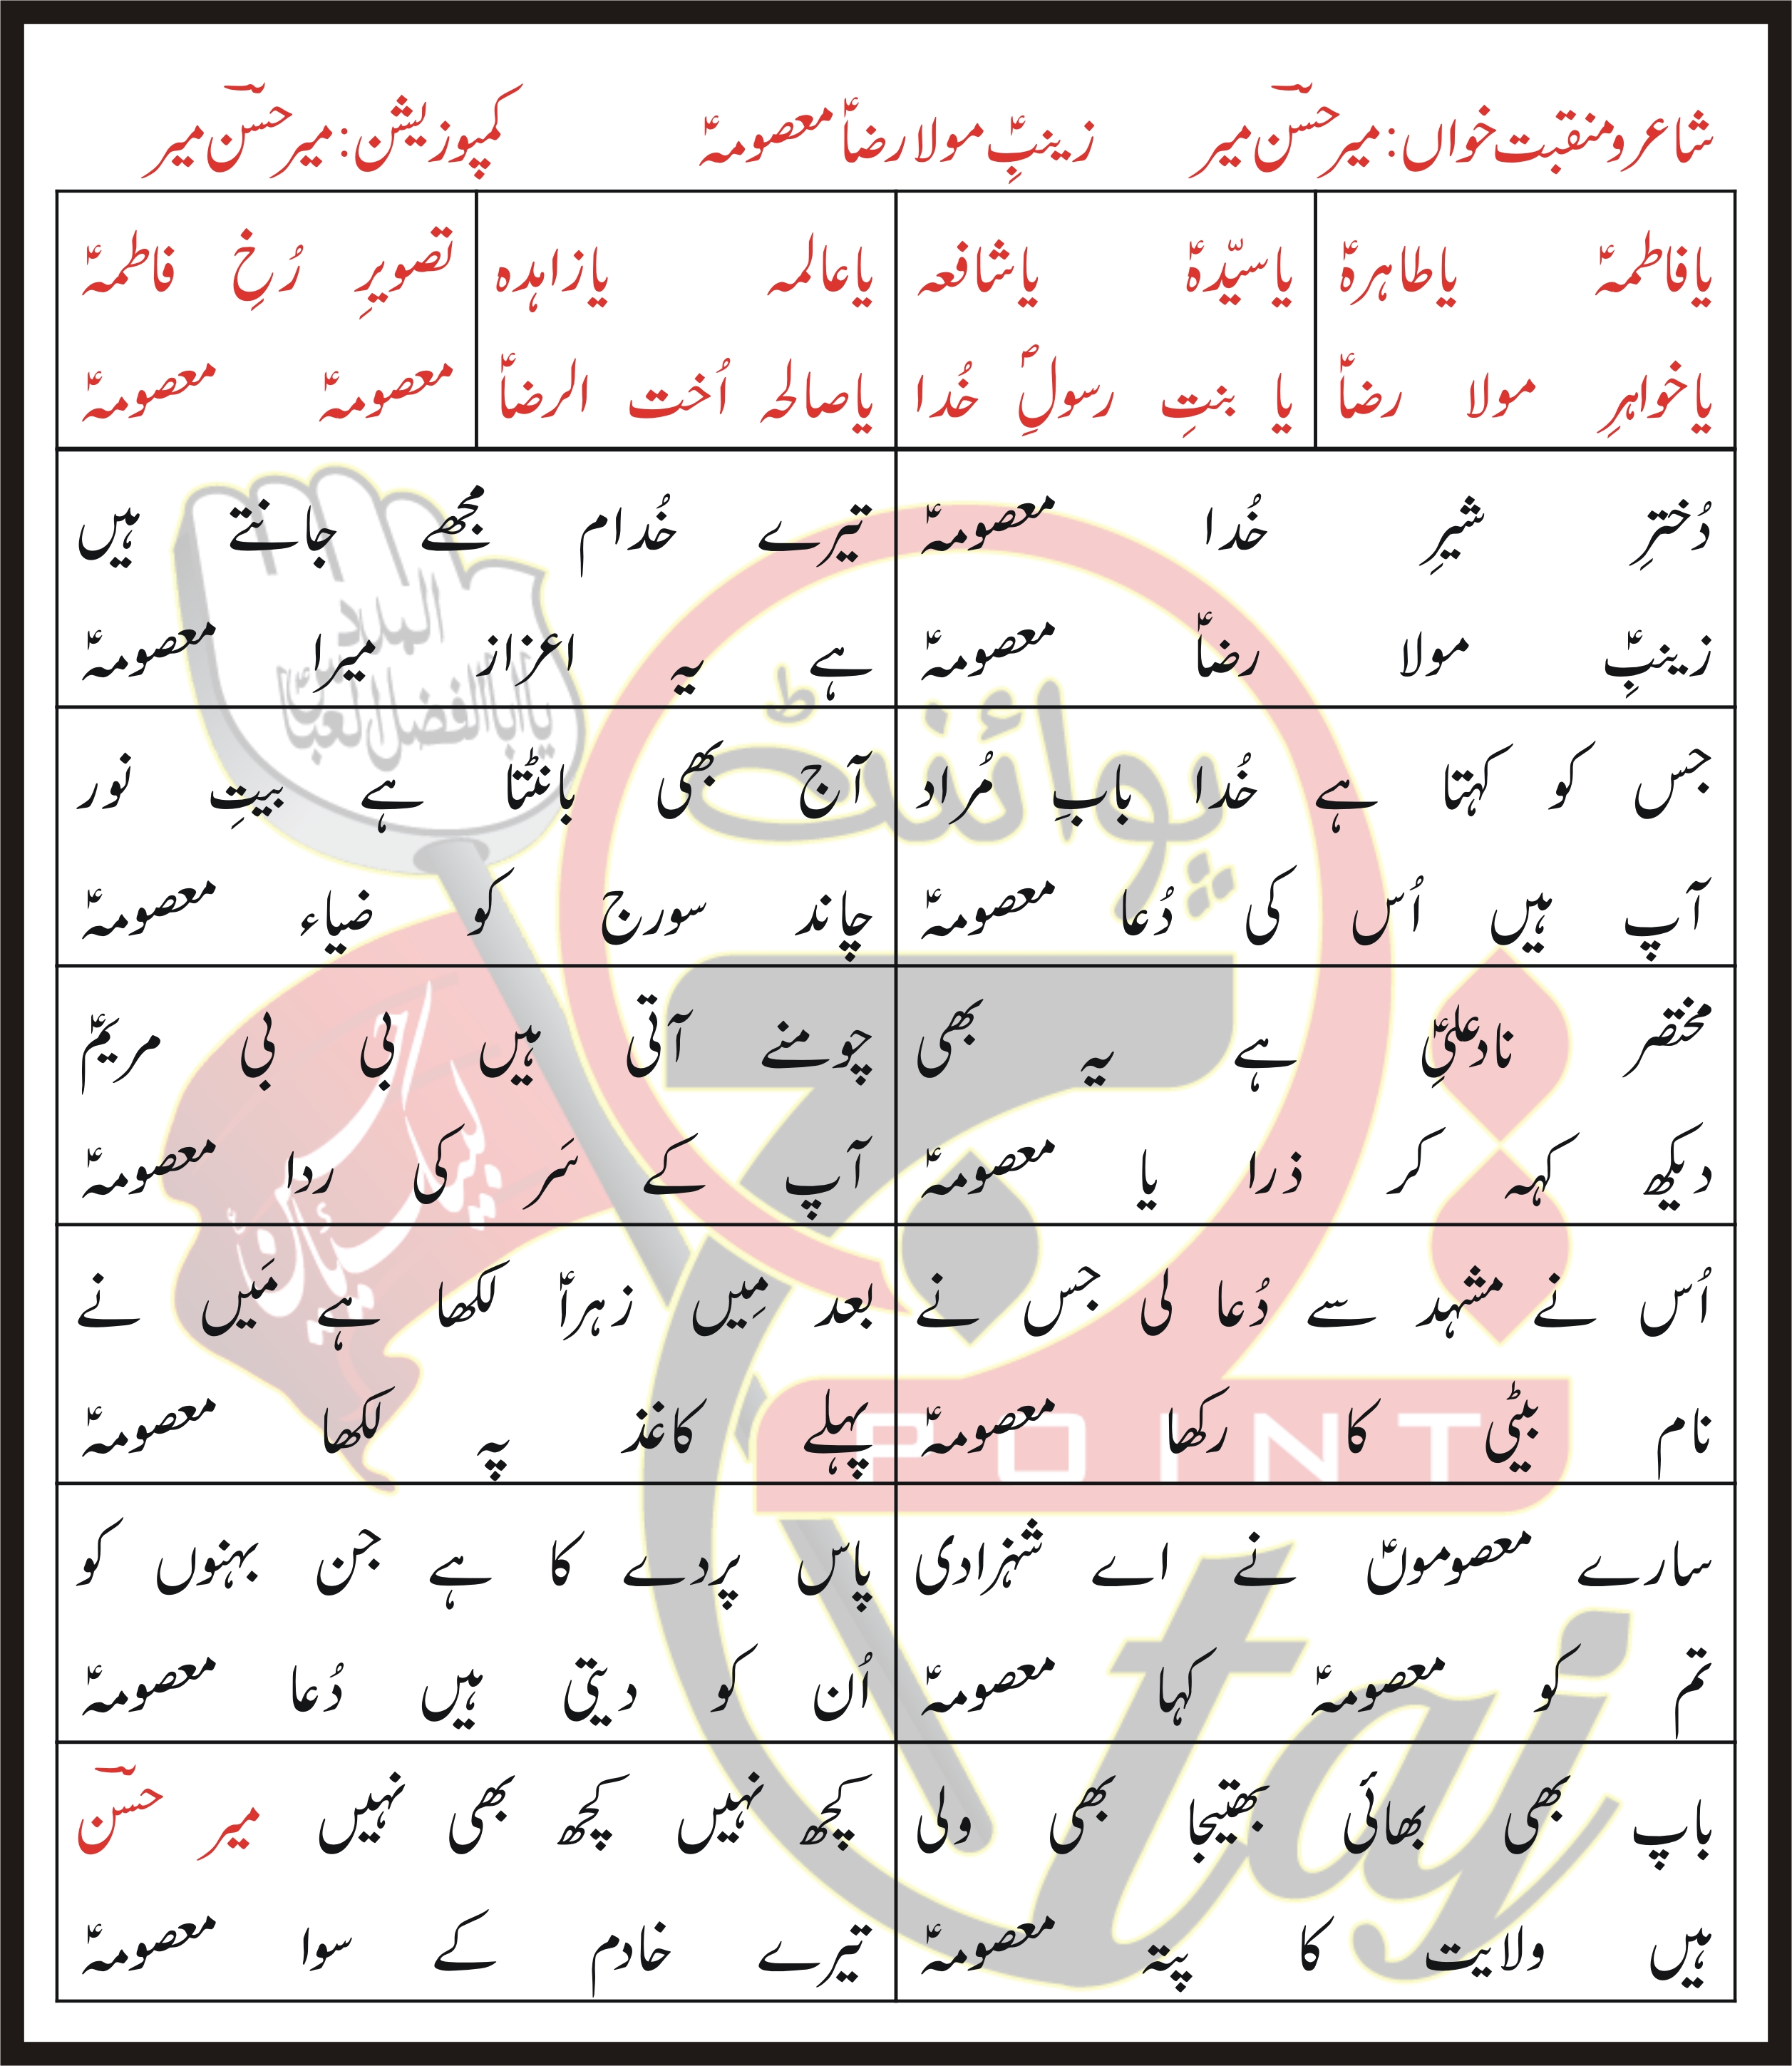 شاعر و منقبت خواں: میر حسنؔ میر
زینبِؑ مولا رضاؑ معصومہؑ
کمپوزیشن: میر حسنؔ میر
یا فاطمہؑ یا طاہرہؑ
یا خواہرِ مولا رضاؑ
یا سیّدہؑ یا شافعہ
یا بنتِ رسولِؐ خُدا
یا عالمہ یا زاہدہ
یا صالحہ اُخت الرضاؑ
تصویرِ رُخِ فاطمہؑ
معصومہؑ معصومہؑ
دُخترِ شیرِ خُدا معصومہؑ
زینبِؑ مولا رضاؑ معصومہؑ
تیرے خُدام مجھے جانتے ہیں
ہے یہ اعزاز میرا معصومہؑ
جس کو کہتا ہے خُدا بابِ مُراد
آپ ہیں اُس کی دُعا معصومہؑ
آج بھی بانٹتا ہے بیتِ نور
چاند سورج کو ضیاء معصومہؑ
مختصر نادِ علیؑ ہے یہ بھی
دیکھ کہہ کر ذرا یا معصومہؑ
چومنے آتی ہیں بی بی مریمؑ
آپ کے سَر کی ردا معصومہؑ
اُس نے مشہد سے دُعا لی جس نے
نام بیٹی کا رکھا معصومہؑ
بعد مِیں زہراؑ لکھا ہے مَیں نے
پہلے کاغذ پہ لکھا معصومہؑ
سارے معصوموںؑ نے اے شہزادی
تم کو معصومہؑ کہا معصومہؑ
پاس پردے کا ہے جن بہنوں کو
اُن کو دیتی ہیں دُعا معصومہؑ
باپ بھی بھائی بھتیجا بھی ولی
ہیں ولایت کا پتہ معصومہؑ
کچھ نہیں کچھ بھی نہیں میر حسنؔ
تیرے خادم کے سوا معصومہؑ
پوائنٹ
POINT
taj